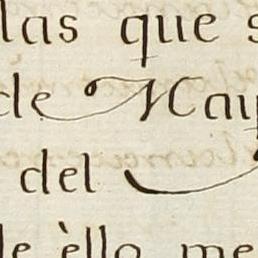 las que s
de May
del
de èllo me